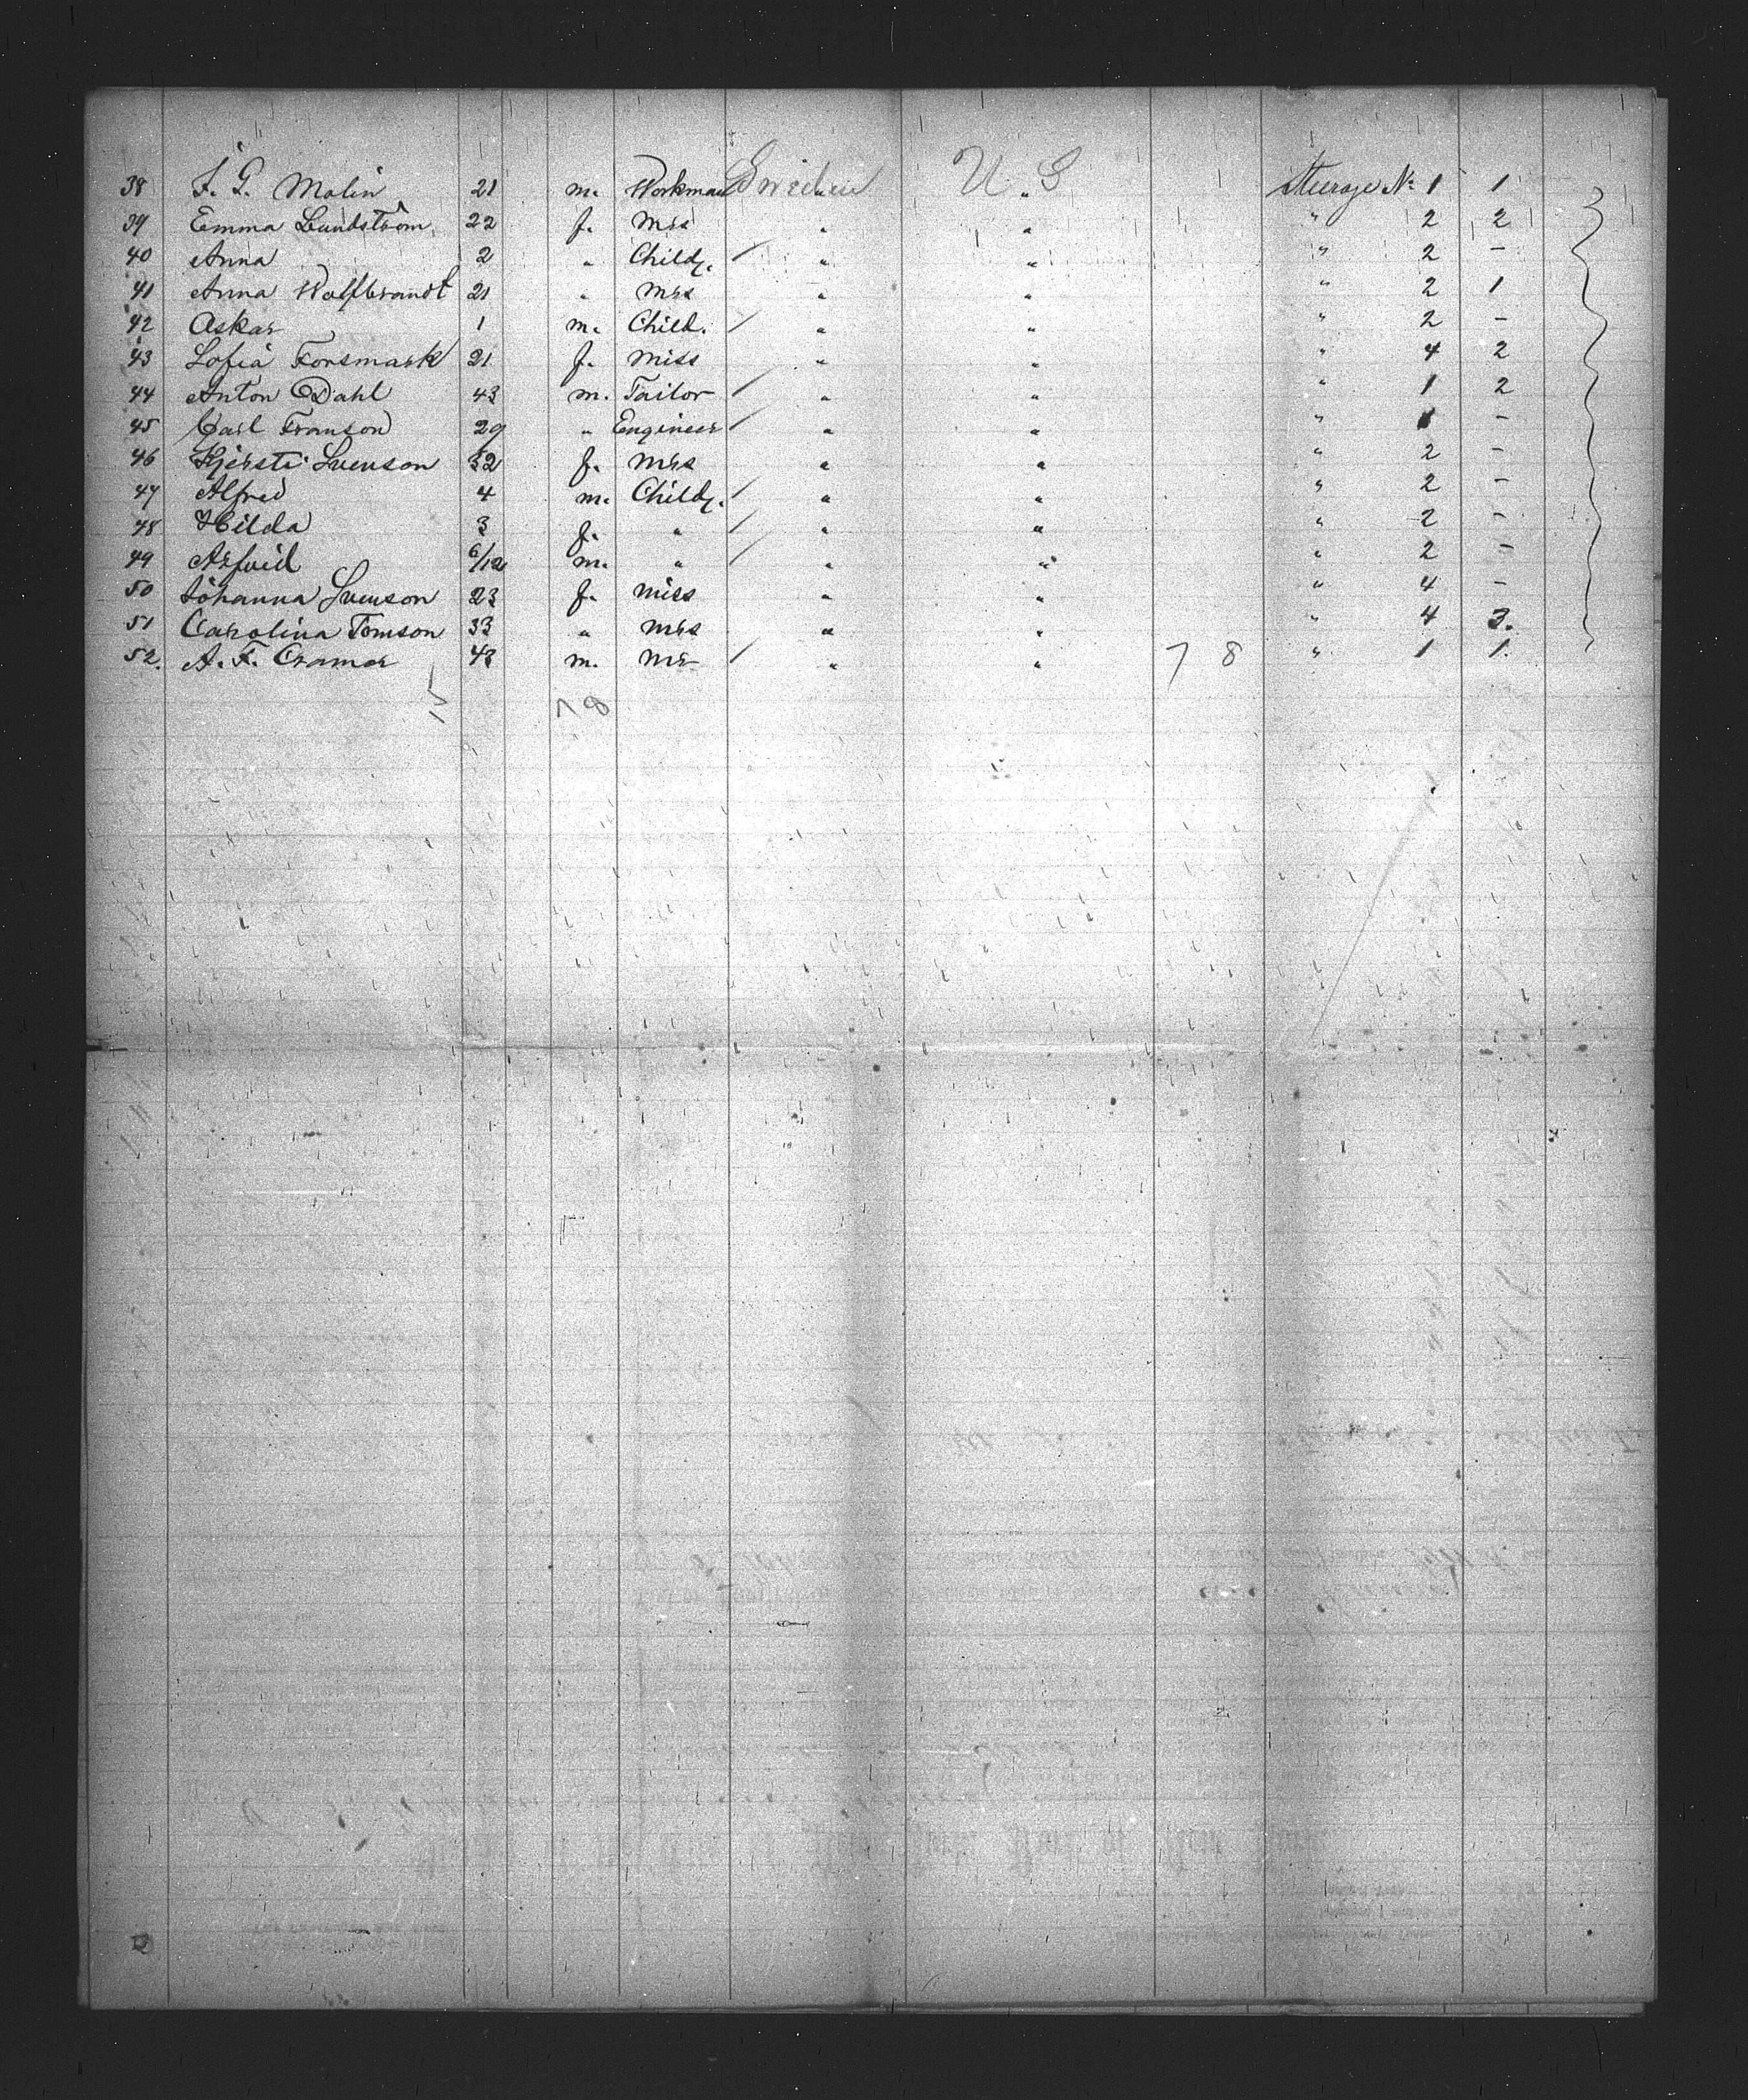 38 J. G. Molin 21 m. Workman Sweden U. S Steerage No. 1 1
39 Emma Lundström 22 f. Mrs " " " 2 2
40 Anna 2 " Child. " " " 2 -
41 Anna Wolfbrandt 21 " Mrs " " " 2 1
42 Askar 1 m. Child. " " " 2 -
43 Sofia Forsmark 21 f. Miss " " " 4 2
44 Anton Dahl 43 m. Tailor " " " 1 2
45 Carl Franson 29 " Engineer " " " 1 -
46 Kjersti Svenson 32 f. Mrs " " " 2 -
47 Alfred 4 m. Child. " " " 2 -
48 Hilda 3 f. " " " " 2 -
49 Arfvid 6/12 m. " " " " 2 -
50 Johanna Svenson 23 f. Miss " " " 4 -
51 Carolina Tomson 33 " Mrs " " " 4 3.
52. A. F. Cramer 43 m. Mr " " 7 8 " 1 1.
15 7 8